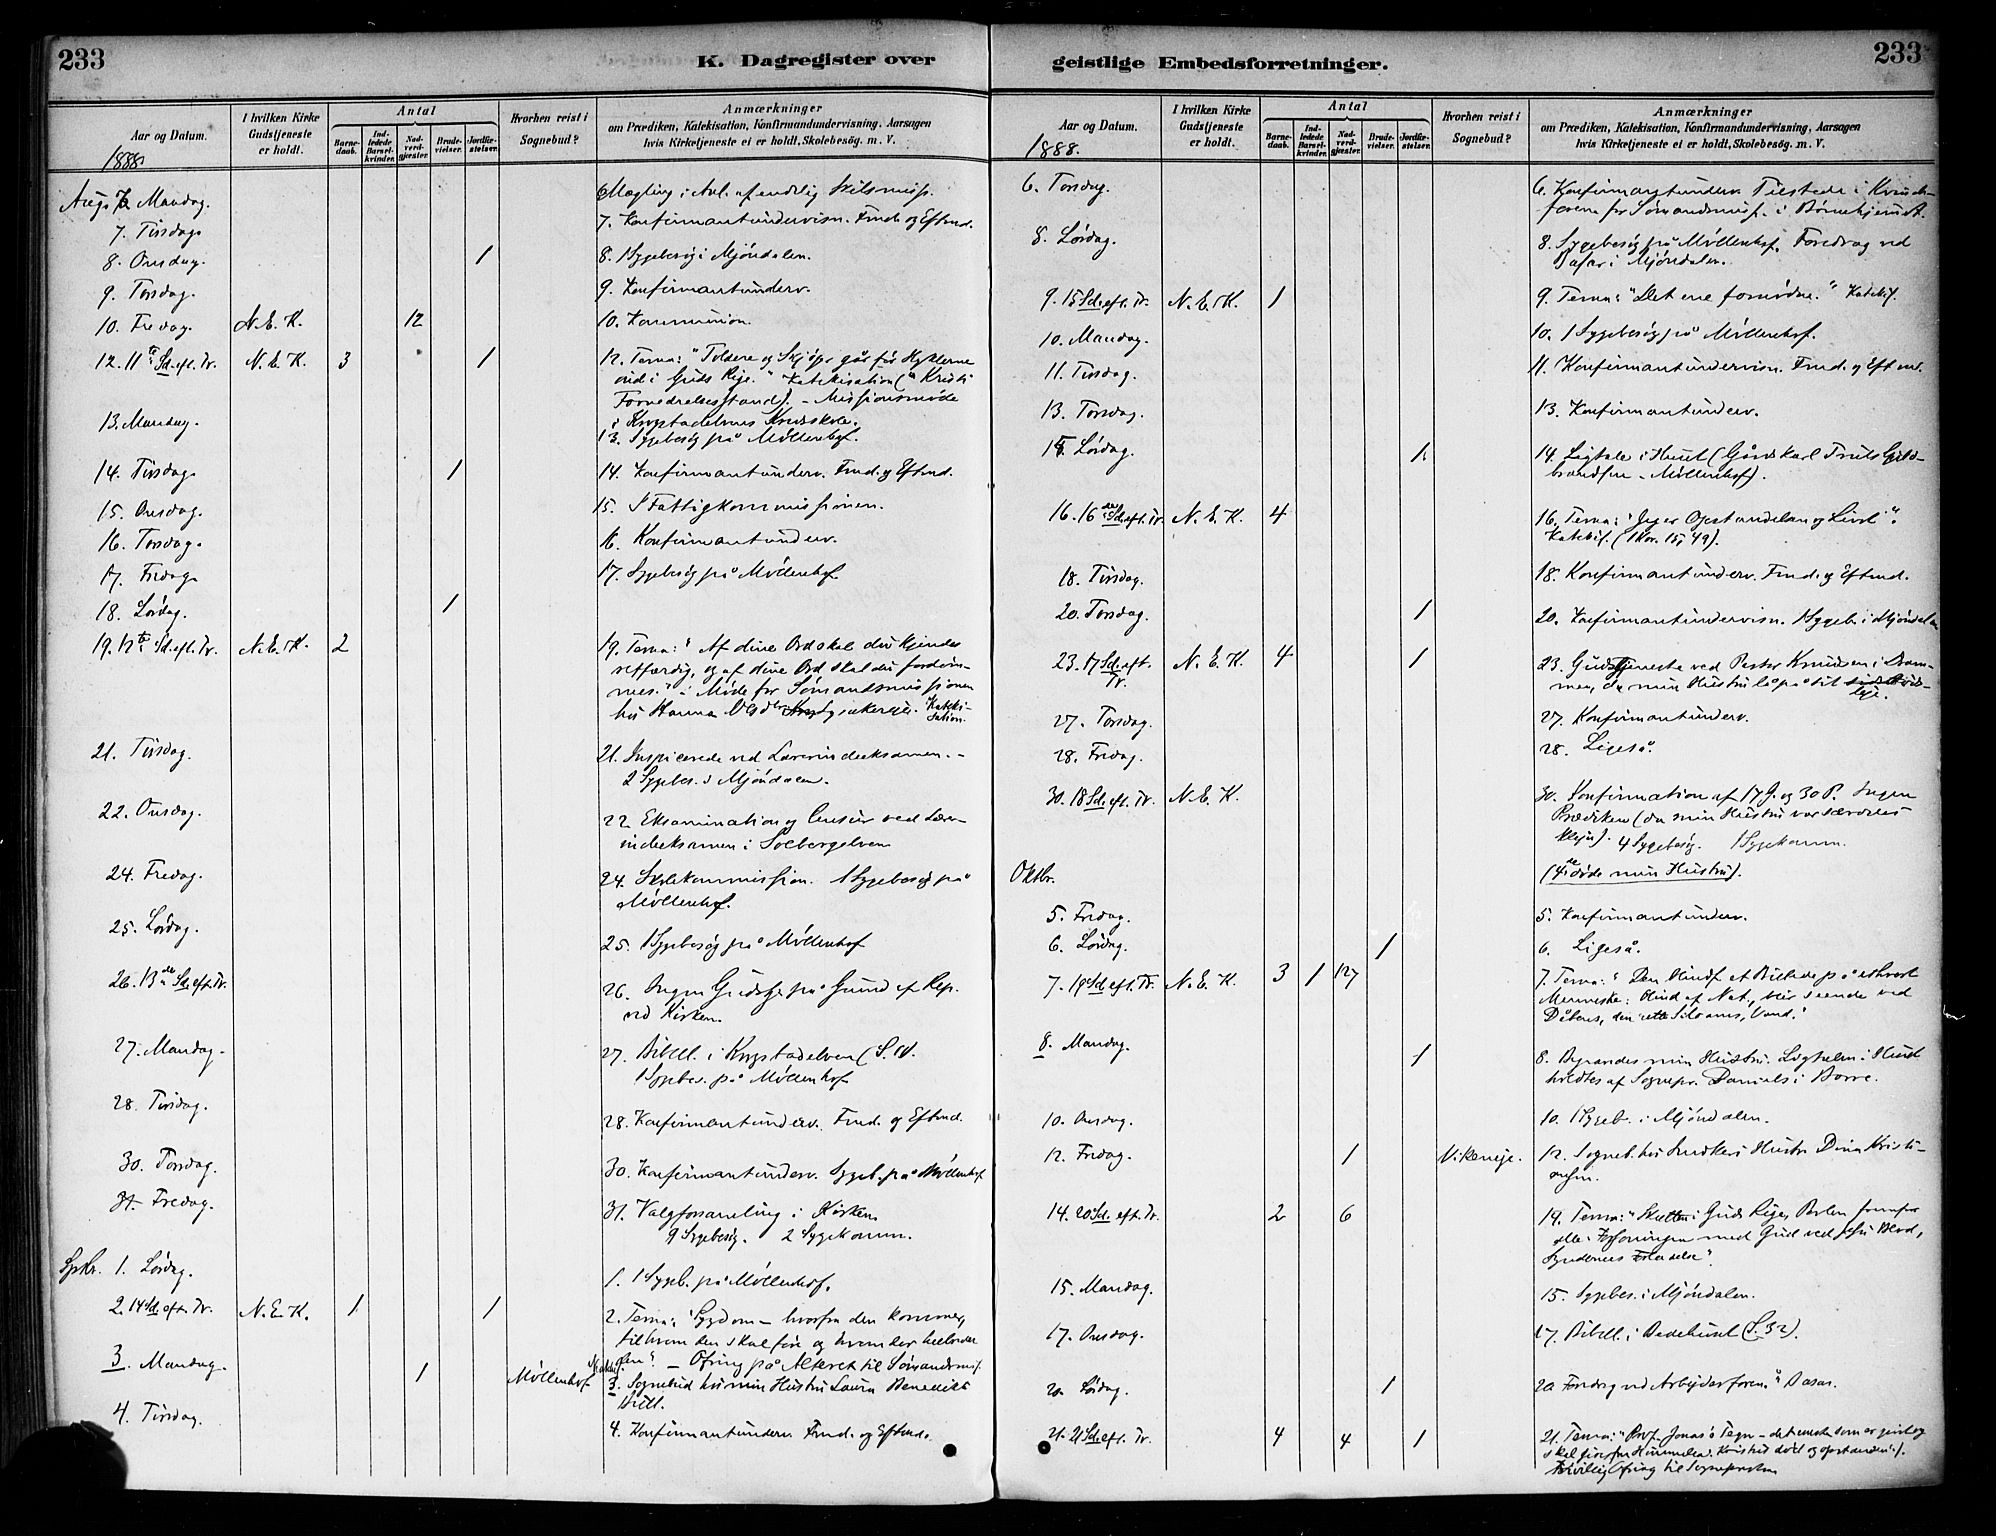 233
K. Dagregister over
Aar og Datum.
I hvilken Kirke Gudstjeneste er holdt.
Antal
Barne-daab.
Ind-ledede Barsel-kvinder.
Nad-verd-gjester.
Brude-vielser.
Jordfæ-stelser.
Hvorhen reist i Sognebud?
Anmærkninger
om Prædiken, Katekisation, Konfirmandundervisning. Aarsagen
hvis Kirketjeneste ei er holdt, Skolebesøg. m. V.
1888.
Aug. 6. Mandag. 6 Mægling i Anl. af endelig Skilsmiss.
7. Tirsdag 7. Konfirmantundervisn. Frmd. og Eftmd.
8. Onsdag. 1 8. 1 Sygebesøg i Mjöndalen.
9. Torsdag. 9. Konfirmantunderv.
10. Fredag. N. E. K. 12 10. Kommunion.
12. 11te Sd. eft. Tr. N. E. K. 3 1 12. Tema: "Toldere og Skjöger går før Hyklerne
ind i Guds Rige." Katekisation ("Kristi
Fornedrelsesstand). - Missionsmøde
i Krogstadelvens Kredsskole.
13. Mandag. 13. Sygebesög på Möllenhof.
14. Tirsdag 1 14. Konfirmantunderv. Frmd. og Eftmd.
15. Onsdag. 15. I Fattigkommissionen.
16. Torsdag. 16. Konfirmantunderv.
17. Fredag 17. Sygebesög på Möllenhof
18. Lördag. 1
19. 12te Sd. eft. Tr. N. E. K. 2 19. Tema: "Af dine Ord skal du kjendes
retfærdig, og af dine Ord skal du fordöm-
mes." i Møde for Sömandsmissionen
hos Hanna Kateki-
sation.
21. Tirsdag. 21. Inspicerede ved Lærerindeeksamen. -
2 Sygebes. i Mjöndalen.
22. Onsdag. 22 Eksamination og Censur ved Lærer-
indeeksamen i Solbergelven
24. Fredag. 24. Skolekommission. 1 Sygebesög på
Möllenhof.
25. Lördag. 25. 1 Sygebesög på Möllenhof
26. 13de Sd. eft. Tr. 26. Ingen Gudstj. på Grund af Rep.
ved Kirken.
27. Mandag. 27. Bibell. i Krogstadelven (
1 Sygebes. på Möllenhof
28. Tirsdag. 28. Konfirmantunderv. Frmd. og Eftmd.
30. Torsdag. 30. Konfirmantunderv. Sygeb. på Möllenhof
31. Fredag. 31. Valgforsamling i Kirken
9 Sygebesög. 2 Sygekomm.
Sptbr. 1. Lördag. 1. 1 Sygeb. på Möllenhof.
2. 14 Sd. eft. Tr. N. E. K. 1 1 2. Tema: "Sygdom - hvorfra den kommer,
til hvem den skal føre og hvem der helbreder
den". - Ofring på Alteret til Sömandsmis.
3. Mandag. 1 Möllenhof 3. Sognebud hos min Hustru Laura Benedikte
4. Tirsdag. 4. Konfirmantunderv. Frmd. og Eftmd.
233
geistlige Embedsforretninger.
Aar og Datum.
I hvilken Kirke Gudstjeneste er holdt.
Antal
Barne-daab.
Ind-ledede Barsel-kvinder.
Nad-verd-gjester.
Brude-vielser.
Jordfæ-stelser.
Hvorhen reist i Sognebud?
Anmærkninger
om Prædiken, Katekisation, Konfirmandundervisning, Aarsagen
hvis Kirketjeneste ei er holdt, Skolebesøg. m. V.
1888.
6. Torsdag. 6. Konfirmantunderv. Tilstede i Kvinde-
foren. for Sömandsmiss. i Børnehjemmet.
8. Lördag. 8. Sygebesög på Möllenhof. Foredrag ved
Basar i Mjöndalen.
9. 15 Sd. eft. Tr. N. E. K. 1 9. Tema: "Det ene fornödne." Katekis.
10. Mandag. 10. 1 Sygebesög på Möllenhof.
11. Tirsdag. 11. Konfirmantundervisn. Frmd. og Eftmd.
13. Torsdag. 13. Konfirmantunderv.
15. Lördag. 1 14. Ligtale i Huset (Gårdskarl Truls Guld-
brandsen - Möllenhof).
16. 16de Sd. eft. Tr. N. E. K. 4 16. Tema: "Jeg er Opstandelsen og Livet".
Katekis. (1 Kor. 15, 49).
18. Tirsdag. 18. Konfirmantunderv. Frmd. og Eftmd.
20. Torsdag. 1 20. Konfirmantundervisn. 1 Sygeb. i Mjöndalen
23. 17 Sd. eft. Tr. N. E. K. 4 1 23. Gudstjeneste ved Pastor Knudsen i Dram-
men, da min Hustru lå på sit
leje.
27. Torsdag. 27. Konfirmantunderv.
28. Fredag. 28. Ligeså.
30. 18 Sd. eft. Tr. N. E. K. 30. Konfirmation af 17 G. og 30 P. Ingen
Prædiken (da min Hustru var
4 Sygebesög. 1 Sygekomm.
Oktbr. (4de døde min Hustru).
5. Fredag. 5. Konfirmantunderv.
6. Lördag. 1 6. Ligeså.
7. 19 Sd. eft. Tr. N. E. K. 3 1 127 7. Tema: "Den blindf. et Billede på ethvert
Menneske: blind af Nat., bliv seende ved
Dåbens, den rette Siloams, Vand."
8. Mandag. 1 8. Begravedes min Hustru. Ligtalen i Huset
holdtes af Sognepr. Daniels i Borre.
10. Onsdag. 10. 1 Sygeb. i Mjöndalen.
12. Fredag. 1 Vikeneje. 12. Sogneb. hos Snedkers Hustru Dina Kristi-
ansen.
14. 20 Sd. eft. Tr. 2 6 19. Tema: "Skatten i Guds Rige, Perlen fremfor
alle: Forsoningen med Gud ved Jesu Blod,
Syndernes Forladelse".
15. Mandag. 15. Sygebes. i Mjöndalen.
17. Onsdag. 17. Bibell. i Bedehuset (S. 32).
20. Lördag. 1 20. Foredrag ved Arbejderforen.s Basar.
21. 21 Sd. eft. Tr. 4 4 1 21. Tema: "Prof. Jonas's Tegn - det eneste som er givet og
skal gives fra Himmelen: Kristus död og opstanden".
Frivillig Ofring til Sognepresten